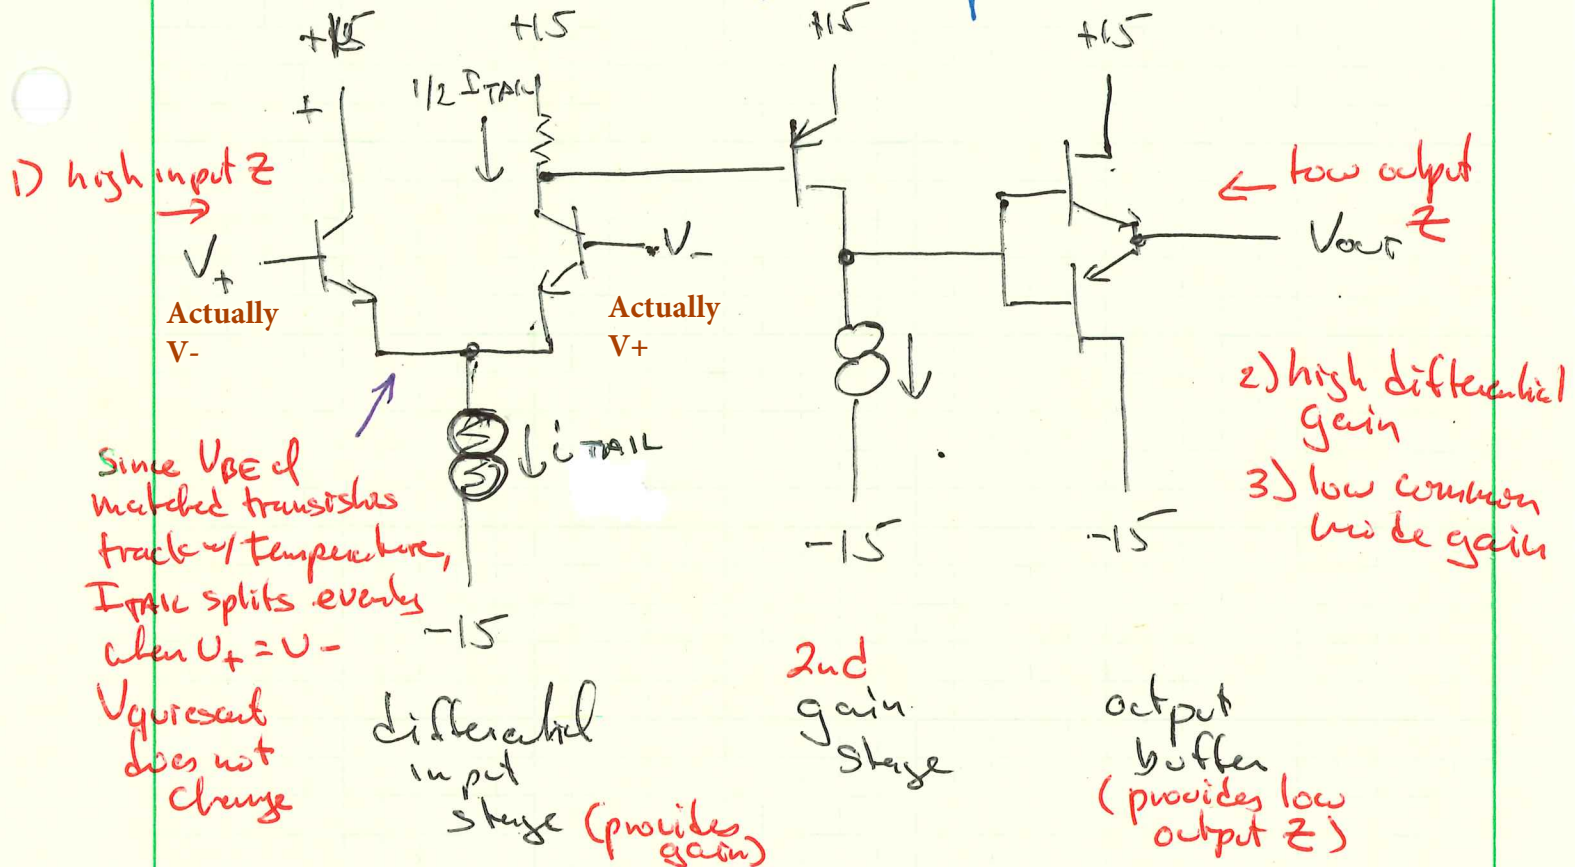 +15
+15
+15
+15
+
1/2 ITAIL
1) high input Z
V+
Actually
V-
V-
Actually
V+
low output
Z
Vout
iTAIL
-15
-15
-15
2) high differential
gain
3) low common
mode gain
Since VBE of
matched transistors
track w/ temperature,
ITAIL splits evenly
when V+ = V-
Vquiescent
does not
change
differential
input
stage (provides
gain)
2nd
gain
stage
output
buffer
(provides low
output Z)